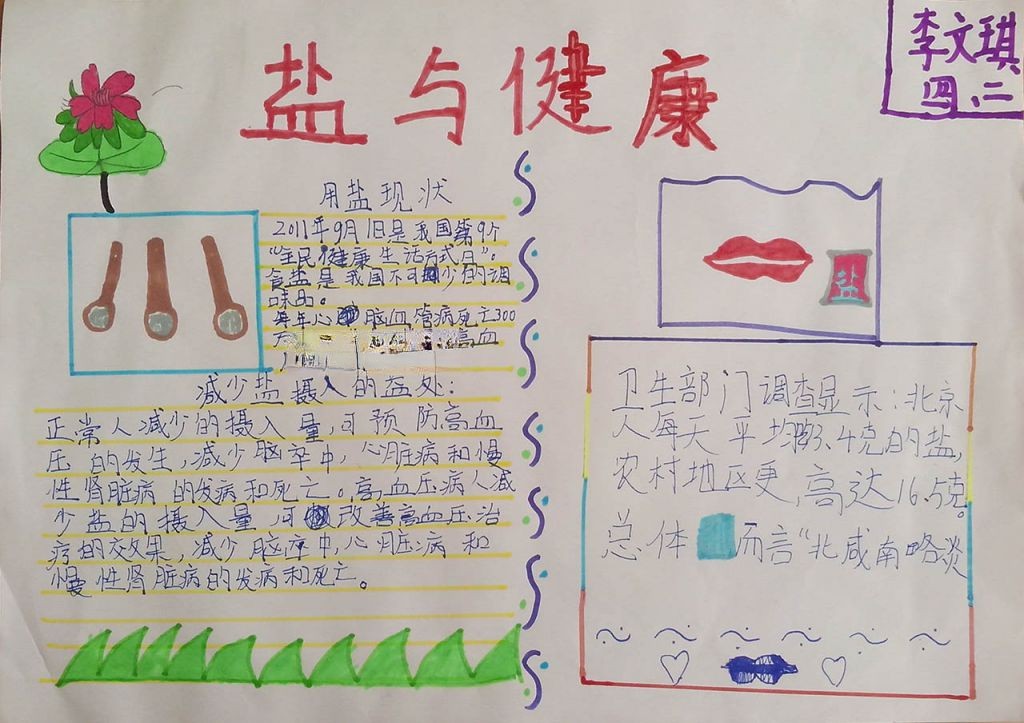 盐与健康
李文琪
四、二
用盐现状
2011年9月1日是我国第9个
“全民健康生活方式日”。
食盐是我国不可缺少的调
味品。
每年心 脑血管病死亡300
万 高血
减少盐摄入的益处:
正常人减少的摄入量,可预防高血
压的发生,减少脑卒中,心脏病和慢
性肾脏病的发病和死亡。高血压病人减
少盐的摄入量,可改善高血压治
疗的效果,减少脑卒中,心脏病和
慢性肾脏病的发病和死亡。
盐
卫生部门调查显示:北京
人每天平均 3.4克的盐,
农村地区更,高达16.5克。
总体 而言“北咸南略淡